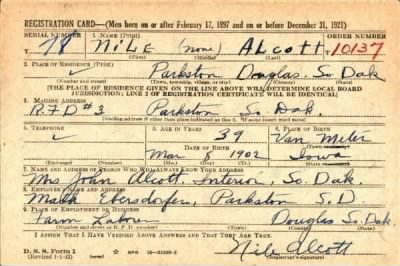 REGISTRATION CARD—(Men born on or after February 17, 1897 and on or before December 31, 1921)
SERIAL NUMBER 1. NAME (Print) ORDER NUMBER
T8 NiLE (none) ALcott 10137
(First) (Middle) (Last)
2. PLACE OF RESIDENCE (Print)
Parkston Douglas So. Dak
(Number and street) (Town, township, village, or city) (County) (State)
[THE PLACE OF RESIDENCE GIVEN ON THE LINE ABOVE WILL DETERMINE LOCAL BOARD
JURISDICTION; LINE 2 OF REGISTRATION CERTIFICATE WILL BE IDENTICAL]
3. MAILING ADDRESS
R.F.D #3 Parkston So. Dak.
(Mailing address if other than place indicated on line 2. If same insert word same)
4. TELEPHONE 5. AGE IN YEARS 6. PLACE OF BIRTH
39 Van Meter
DATE OF BIRTH (Town or county)
Mar 8 1902 Iowa
(Exchange) (Number) (Mo.) (Day) (Yr.) (State or country)
7. NAME AND ADDRESS OF PERSON WHO WILL ALWAYS KNOW YOUR ADDRESS
Mrs John Alcott, Interior, So. Dak.
8. EMPLOYER'S NAME AND ADDRESS
Ebersdorfer, Parkston S.D.
9. PLACE OF EMPLOYMENT OR BUSINESS
Farm Laborer Douglas So. Dak.
(Number and street or R. F. D. number) (Town) (County) (State)
I AFFIRM THAT I HAVE VERIFIED ABOVE ANSWERS AND THAT THEY ARE TRUE.
D. S. S. Form 1
(Revised 1-1-42) (over) GPO 16-21630-2
Nile Alcott
(Registrant's signature)